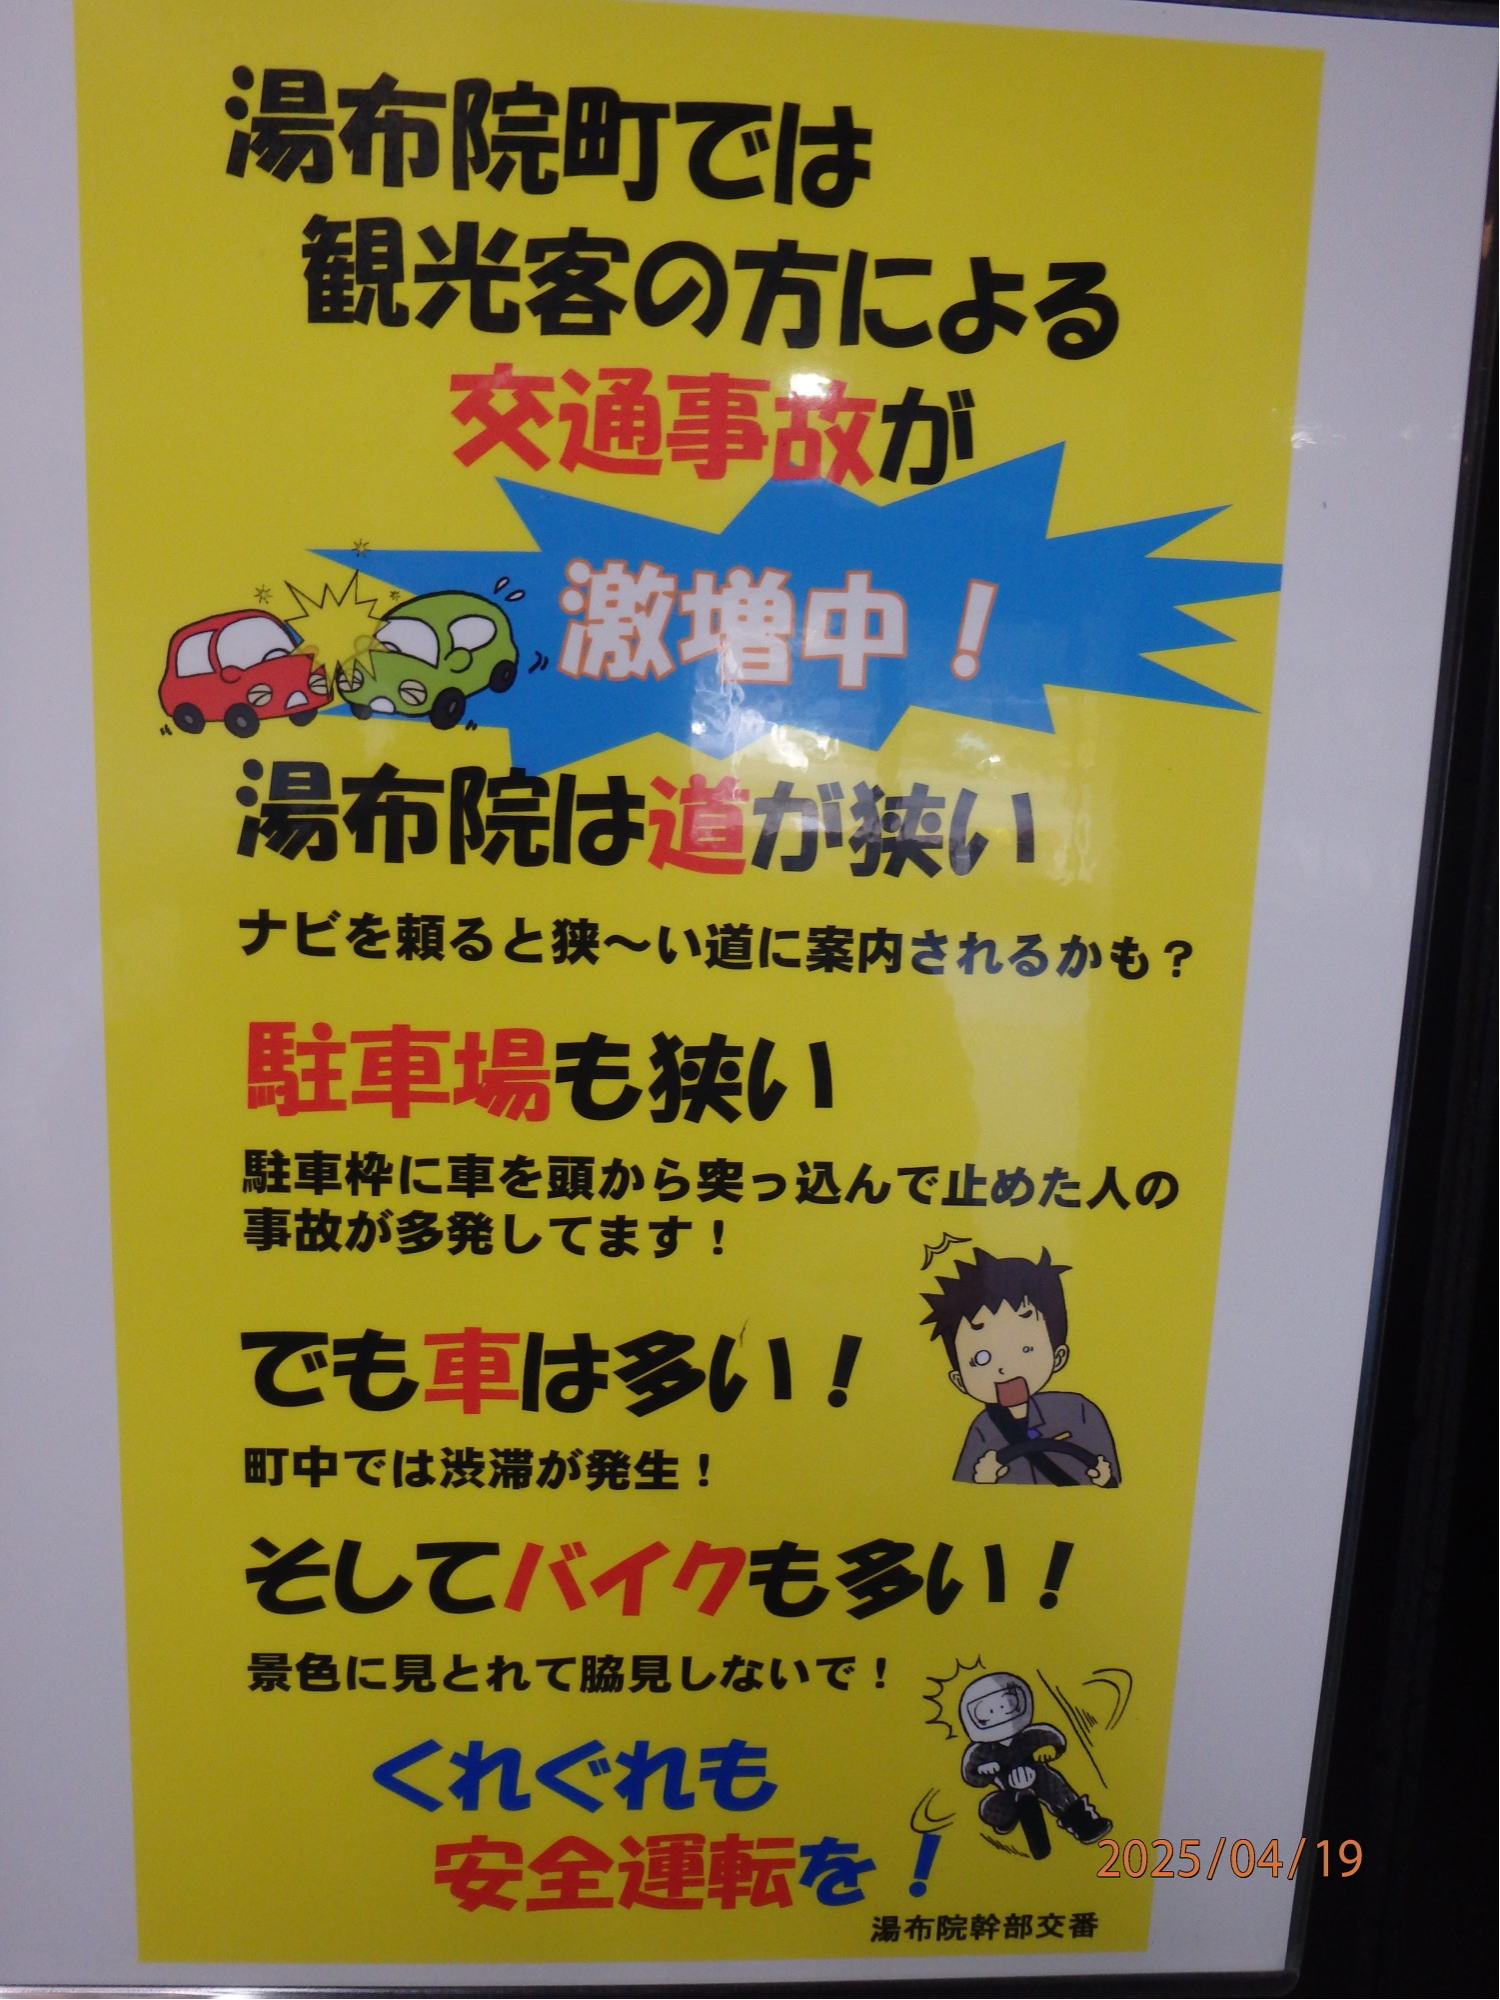 湯布院町では
観光客の方による
交通事故が
激増中！
湯布院は道が狭い
ナビを頼ると狭～い道に案内されるかも？
駐車場も狭い
駐車枠に車を頭から突っ込んで止めた人の
事故が多発してます！
でも車は多い！
町中では渋滞が発生！
そしてバイクも多い！
景色に見とれて脇見しないで！
くれぐれも
安全運転を！
湯布院幹部交番
2025/04/19